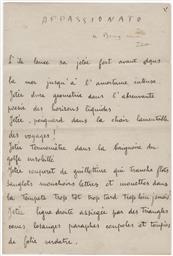 APPASSIONATO
S'il lance sa jetée fort avant dans
la mer jusqu'à l'amertume intense
Jetée dure géométrie dans l'abreuvante
poésie des horizons liquides
Jetée, poignard dans la chair lamentable
des voyages !
Jetée Termomètre dans la baignoire du
golfe
Jetée couperet de guillotine qui tranche flots
sanglots mouchoirs lettres et mouettes dans
la Tempête Trop tôt trop tard Trop loin jamais
Jetée ligne droite assiégée par des Triangles
cônes losanges paraphes coupoles et toupies
de folie verdâtre.